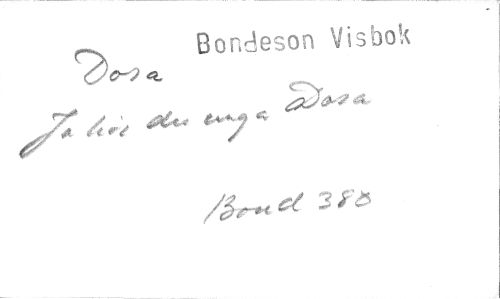 Bondeson Visbok
Dora
Ja hör du unga Dora
Bond 380